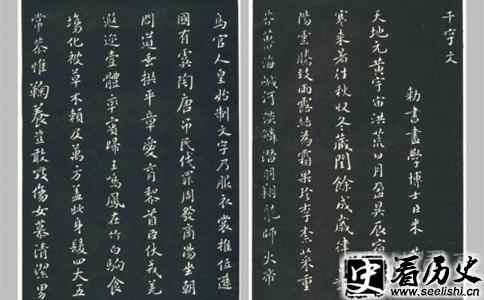 千字文
勅書畫學博士臣米
天地元黄宇宙洪荒日月盈昃辰
寒来暑往秋收冬藏閏餘成歲律
陽雲騰致雨露結為霜果珍李柰菜重
芥薑海鹹河淡鱗潛羽翔龍師火帝
鳥官人皇始制文字乃服衣裳推位遜
國有虞陶唐弔民伐罪周發商湯坐朝
問道垂拱平章愛育黎首臣伏戎羌
遐迩壹體率賓歸王鳴鳳在竹白駒食
場化被草木賴及萬方盖此身髮四大五
常恭惟鞠養豈敢毀傷女慕清潔男
史看历史
www.seelishi.cn